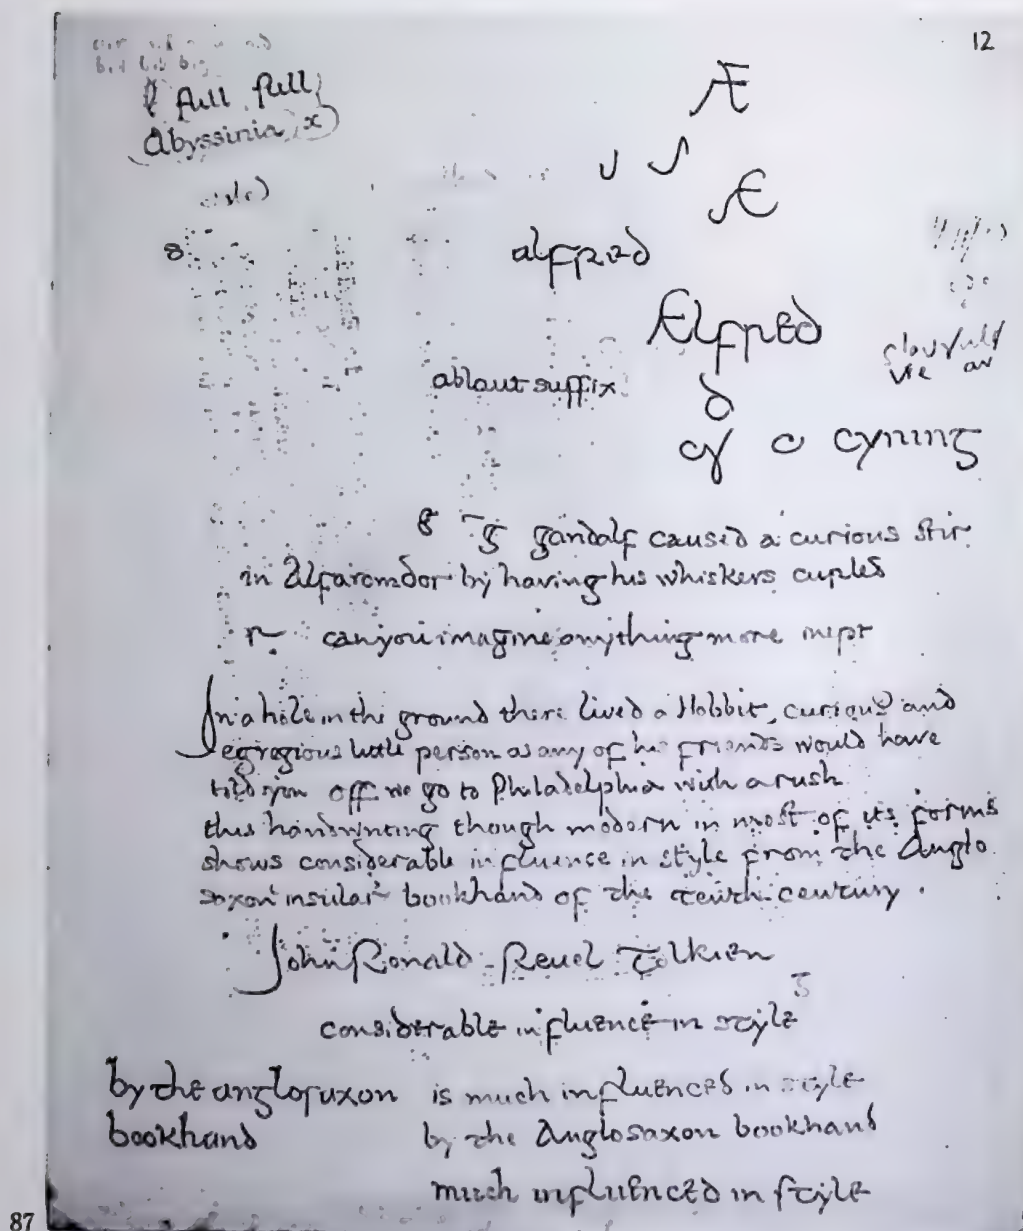 12
full full
Abyssinia x
Æ
Æ
8
alfred
Ælfred
ablaut suffix
d
cy c cyning
g g gandalf caused a curious stir
in Alfaromdor by having his whiskers curled
r can you imagine anything more inept
In a hole in the ground there lived a Hobbit, curious and
egregious little person as any of his friends would have
told you off we go to Philadelphia with a rush
this handwriting though modern in most of its forms
shows considerable influence in style from the Anglo
saxon insular bookhand of the tenth century .
John Ronald Reuel Tolkien
considerable influence in style
by the anglosaxon is much influenced in style
bookhand by the Anglosaxon bookhand
much influenced in style
87